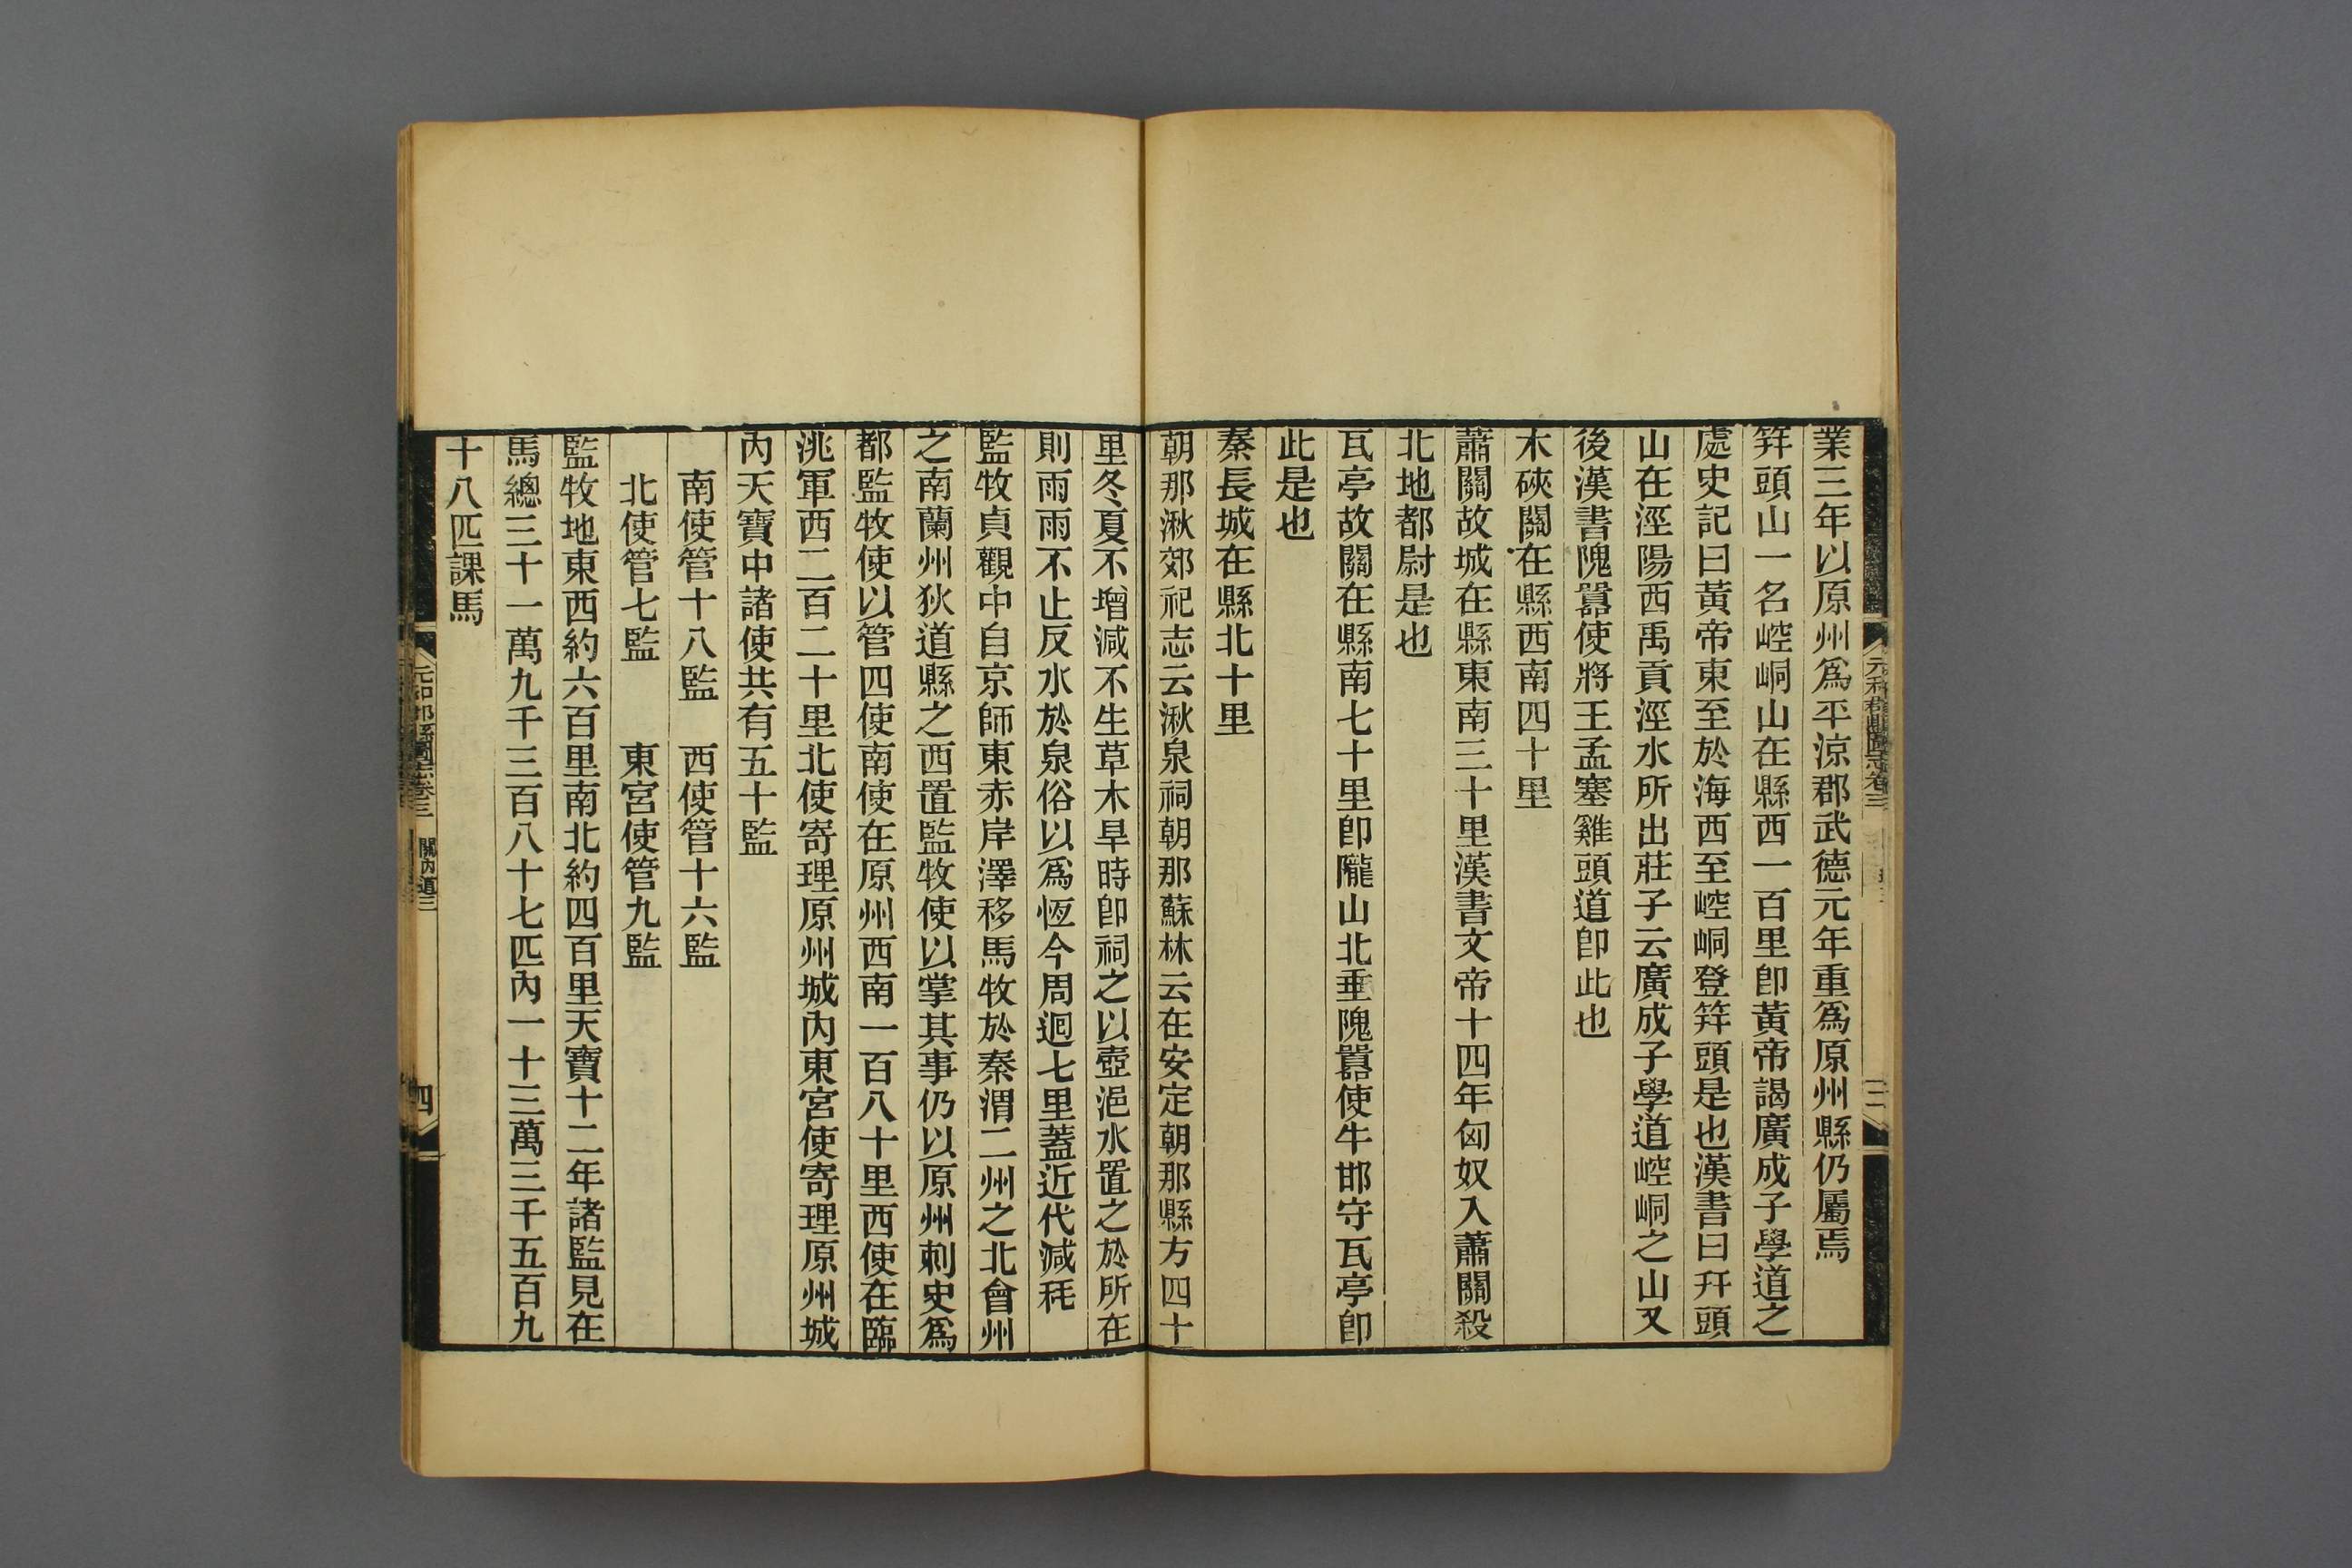 業三年以原州爲平涼郡武德元年重爲原州縣仍屬焉
笄頭山一名崆峒山在縣西一百里卽黃帝謁廣成子學道之
處史記曰黃帝東至於海西至崆峒登笄頭是也漢書曰幵頭
山在涇陽西禹貢涇水所出莊子云廣成子學道崆峒之山又
後漢書隗囂使將王孟塞雞頭道卽此也
木硤關在縣西南四十里
蕭關故城在縣東南三十里漢書文帝十四年匈奴入蕭關殺
北地都尉是也
瓦亭故關在縣南七十里卽隴山北垂隗囂使牛邯守瓦亭卽
此是也
秦長城在縣北十里
朝那湫郊祀志云湫泉祠朝那蘇林云在安定朝那縣方四十
里冬夏不增減不生草木旱時卽祠之以壺浥水置之於所在
則雨雨不止反水於泉俗以爲恆今周迴七里蓋近代減耗
監牧貞觀中自京師東赤岸澤移馬牧於秦渭二州之北會州
之南蘭州狄道縣之西置監牧使以掌其事仍以原州刺史爲
都監牧使以管四使南使在原州西南一百八十里西使在臨
洮軍西二百二十里北使寄理原州城內東宮使寄理原州城
內天寶中諸使共有五十監
南使管十八監　西使管十六監
北使管七監　　東宮使管九監
監牧地東西約六百里南北約四百里天寶十二年諸監見在
馬總三十一萬九千三百八十七匹內一十三萬三千五百九
十八匹課馬
元和郡縣圖志卷三　關內道三
四